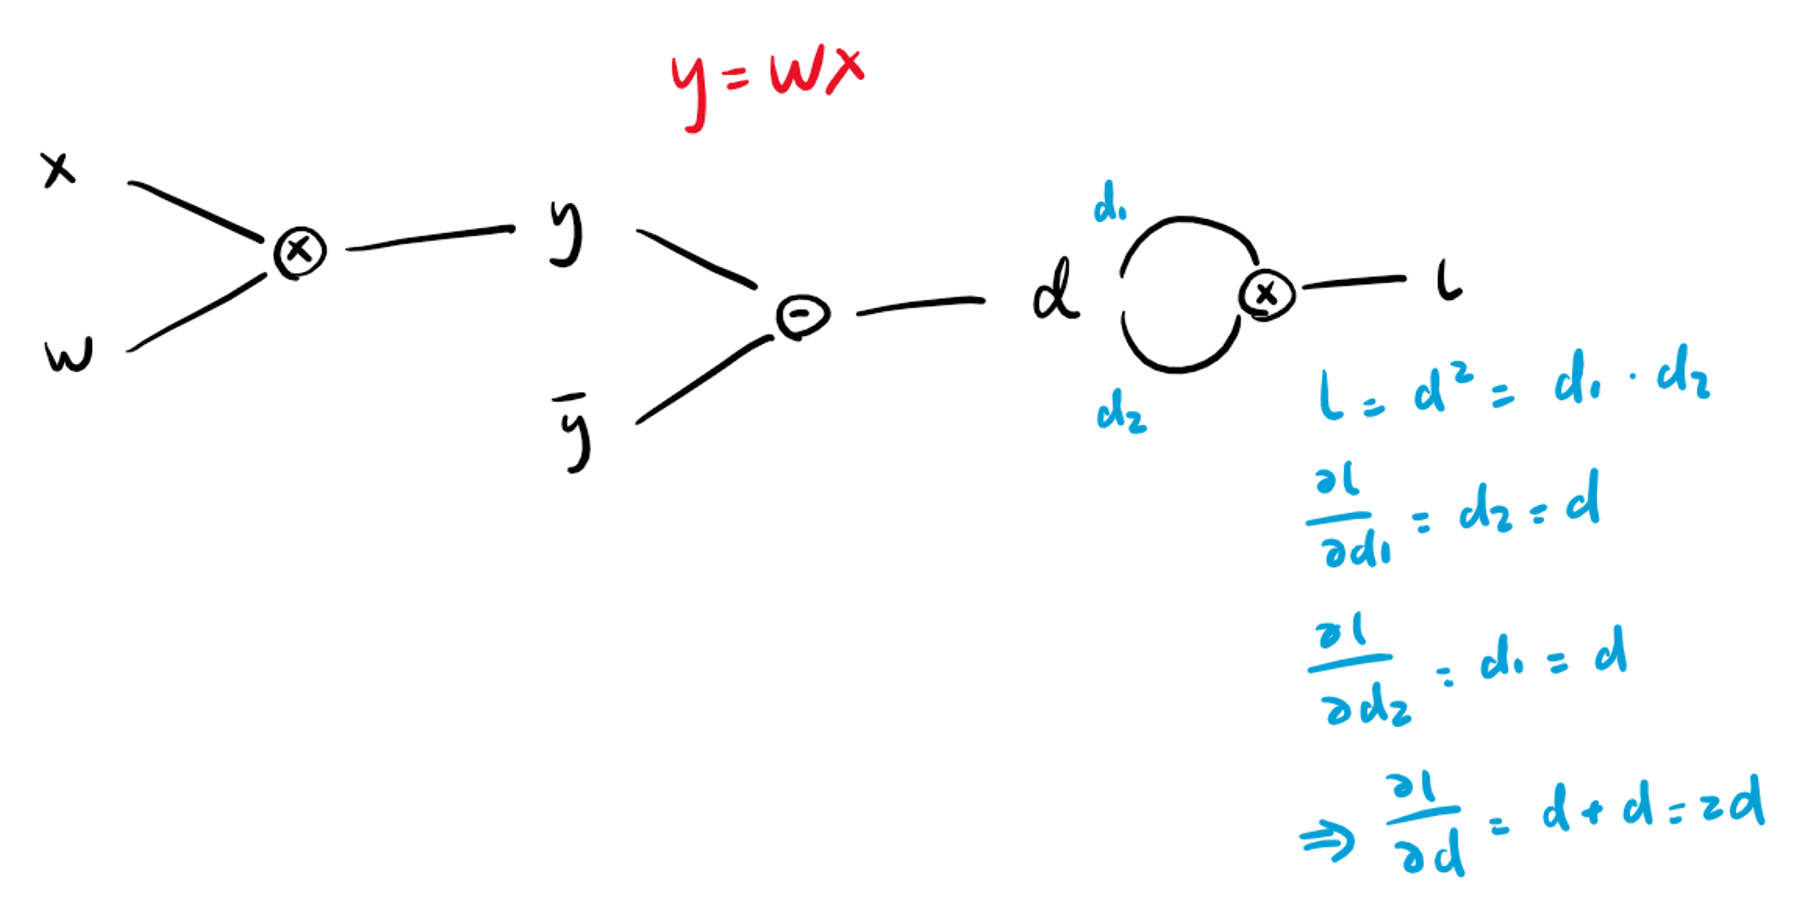 y = wx
x
w
⊗
y
ȳ
⊖
d
d₁
d₂
⊗
l
l = d² = d₁ · d₂
∂l/∂d₁ = d₂ = d
∂l/∂d₂ = d₁ = d
⇒ ∂l/∂d = d + d = 2d